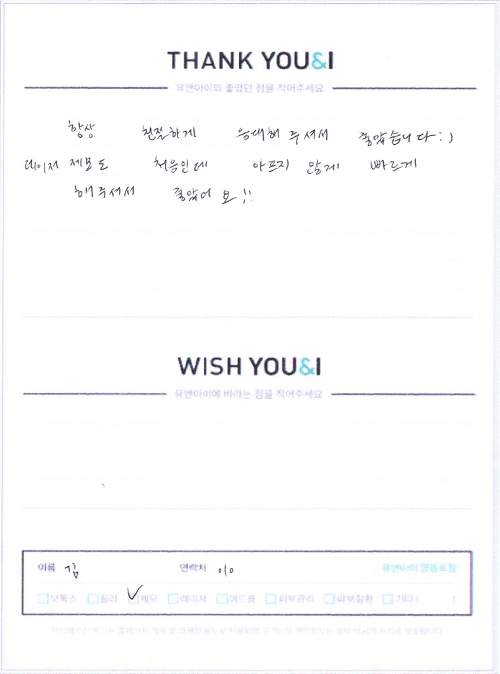 THANK YOU&I
유앤아이의 좋았던 점을 적어주세요
항상 친절하게 응대해 주셔서 좋았습니다 :)
레이저 제모도 처음인데 아프지 않게 빠르게
해주셔서 좋았어요!!
WISH YOU&I
유앤아이에 바라는 점을 적어주세요
이름 김 연락처 010 유앤아이 영등포점
보톡스 필러 제모 레이저 여드름 피부관리 피부질환 기타 ( )